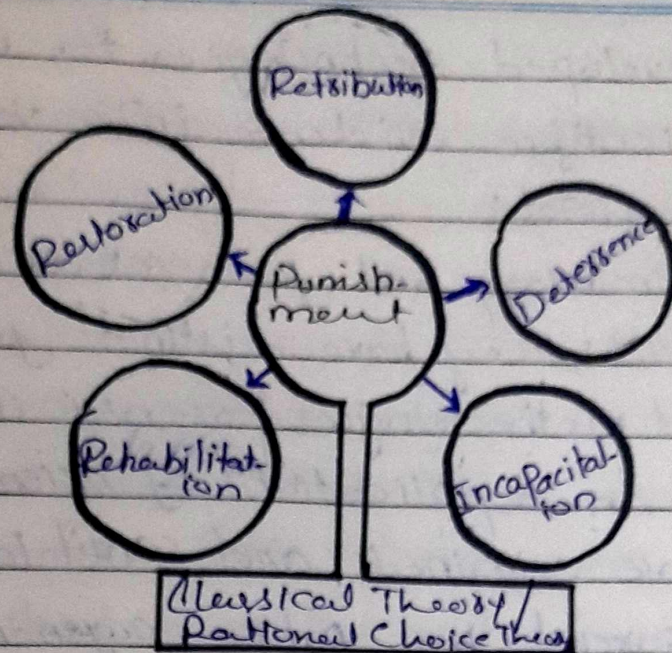 Retribution
Restoration
Punish-
ment
Deterrence
Rehabilitat-
ion
Incapacitat-
ion
Classical Theory/
Rational Choice Theory